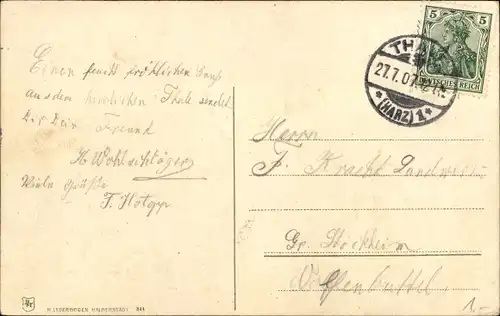 Einen feucht fröhlichen Gruß
aus dem herrlichen Thale sendet
Dir Dein Freund
H. Wohlschläger
Viele Grüße
F. Hotopp
THALE
27.7.07
*(HARZ)1*
5 5
DEUTSCHES REICH
Herrn
F. Kracht Landwirt
Gr. Stöckheim
Wolfenbüttel
H. LEDERBOGEN HALBERSTADT
1-